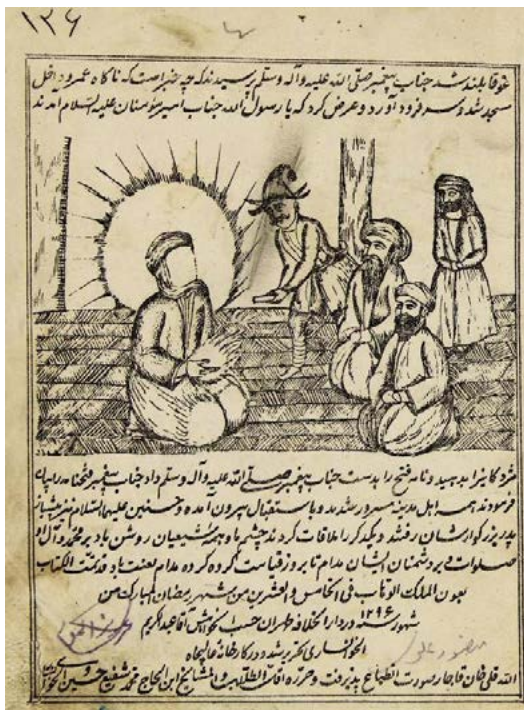 ۱۲۶
غوغا بلند شد جناب پیغمبر صلی الله علیه و آله وسلم پرسیدند که چه خبر است که ناگاه عمرو داخل
مسجد شد و سر فرود آورد و عرض کرد که یا رسول الله جناب امیر مؤمنان علیه السلام آمدند
بوسید و نامه فتح را بدست جناب پیغمبر صلی الله علیه و آله وسلم داد جناب پیغمبر فتحنامه را
فرمودند همه اهل مدینه مسرور شدند و باستقبال بیرون آمده و حسنین علیهما السلام نیز
پدر بزرگوارشان رفتند و یکدیگر را ملاقات کردند چشم ما و همه شیعیان روشن باد بر محمد و آل او
صلوات بر دشمنان ایشان مدام تا بروز قیامت گروه کرده مدام لعنت باد قد تمت الکتاب
بعون الملک الوهاب فی الخامس والعشرین من شهر رمضان المبارک من
شهور سنه ۱۲۹۶ در دار الخلافه طهران حسب الخواهش آقا عبد الکریم
الخوانساری تحریر شد و در کارخانه عالیجاه
الله قلی خان قاجار صورت انطباع پذیرفت و حرره اقل الطلاب ابن الحاج محمد شفیع حسین